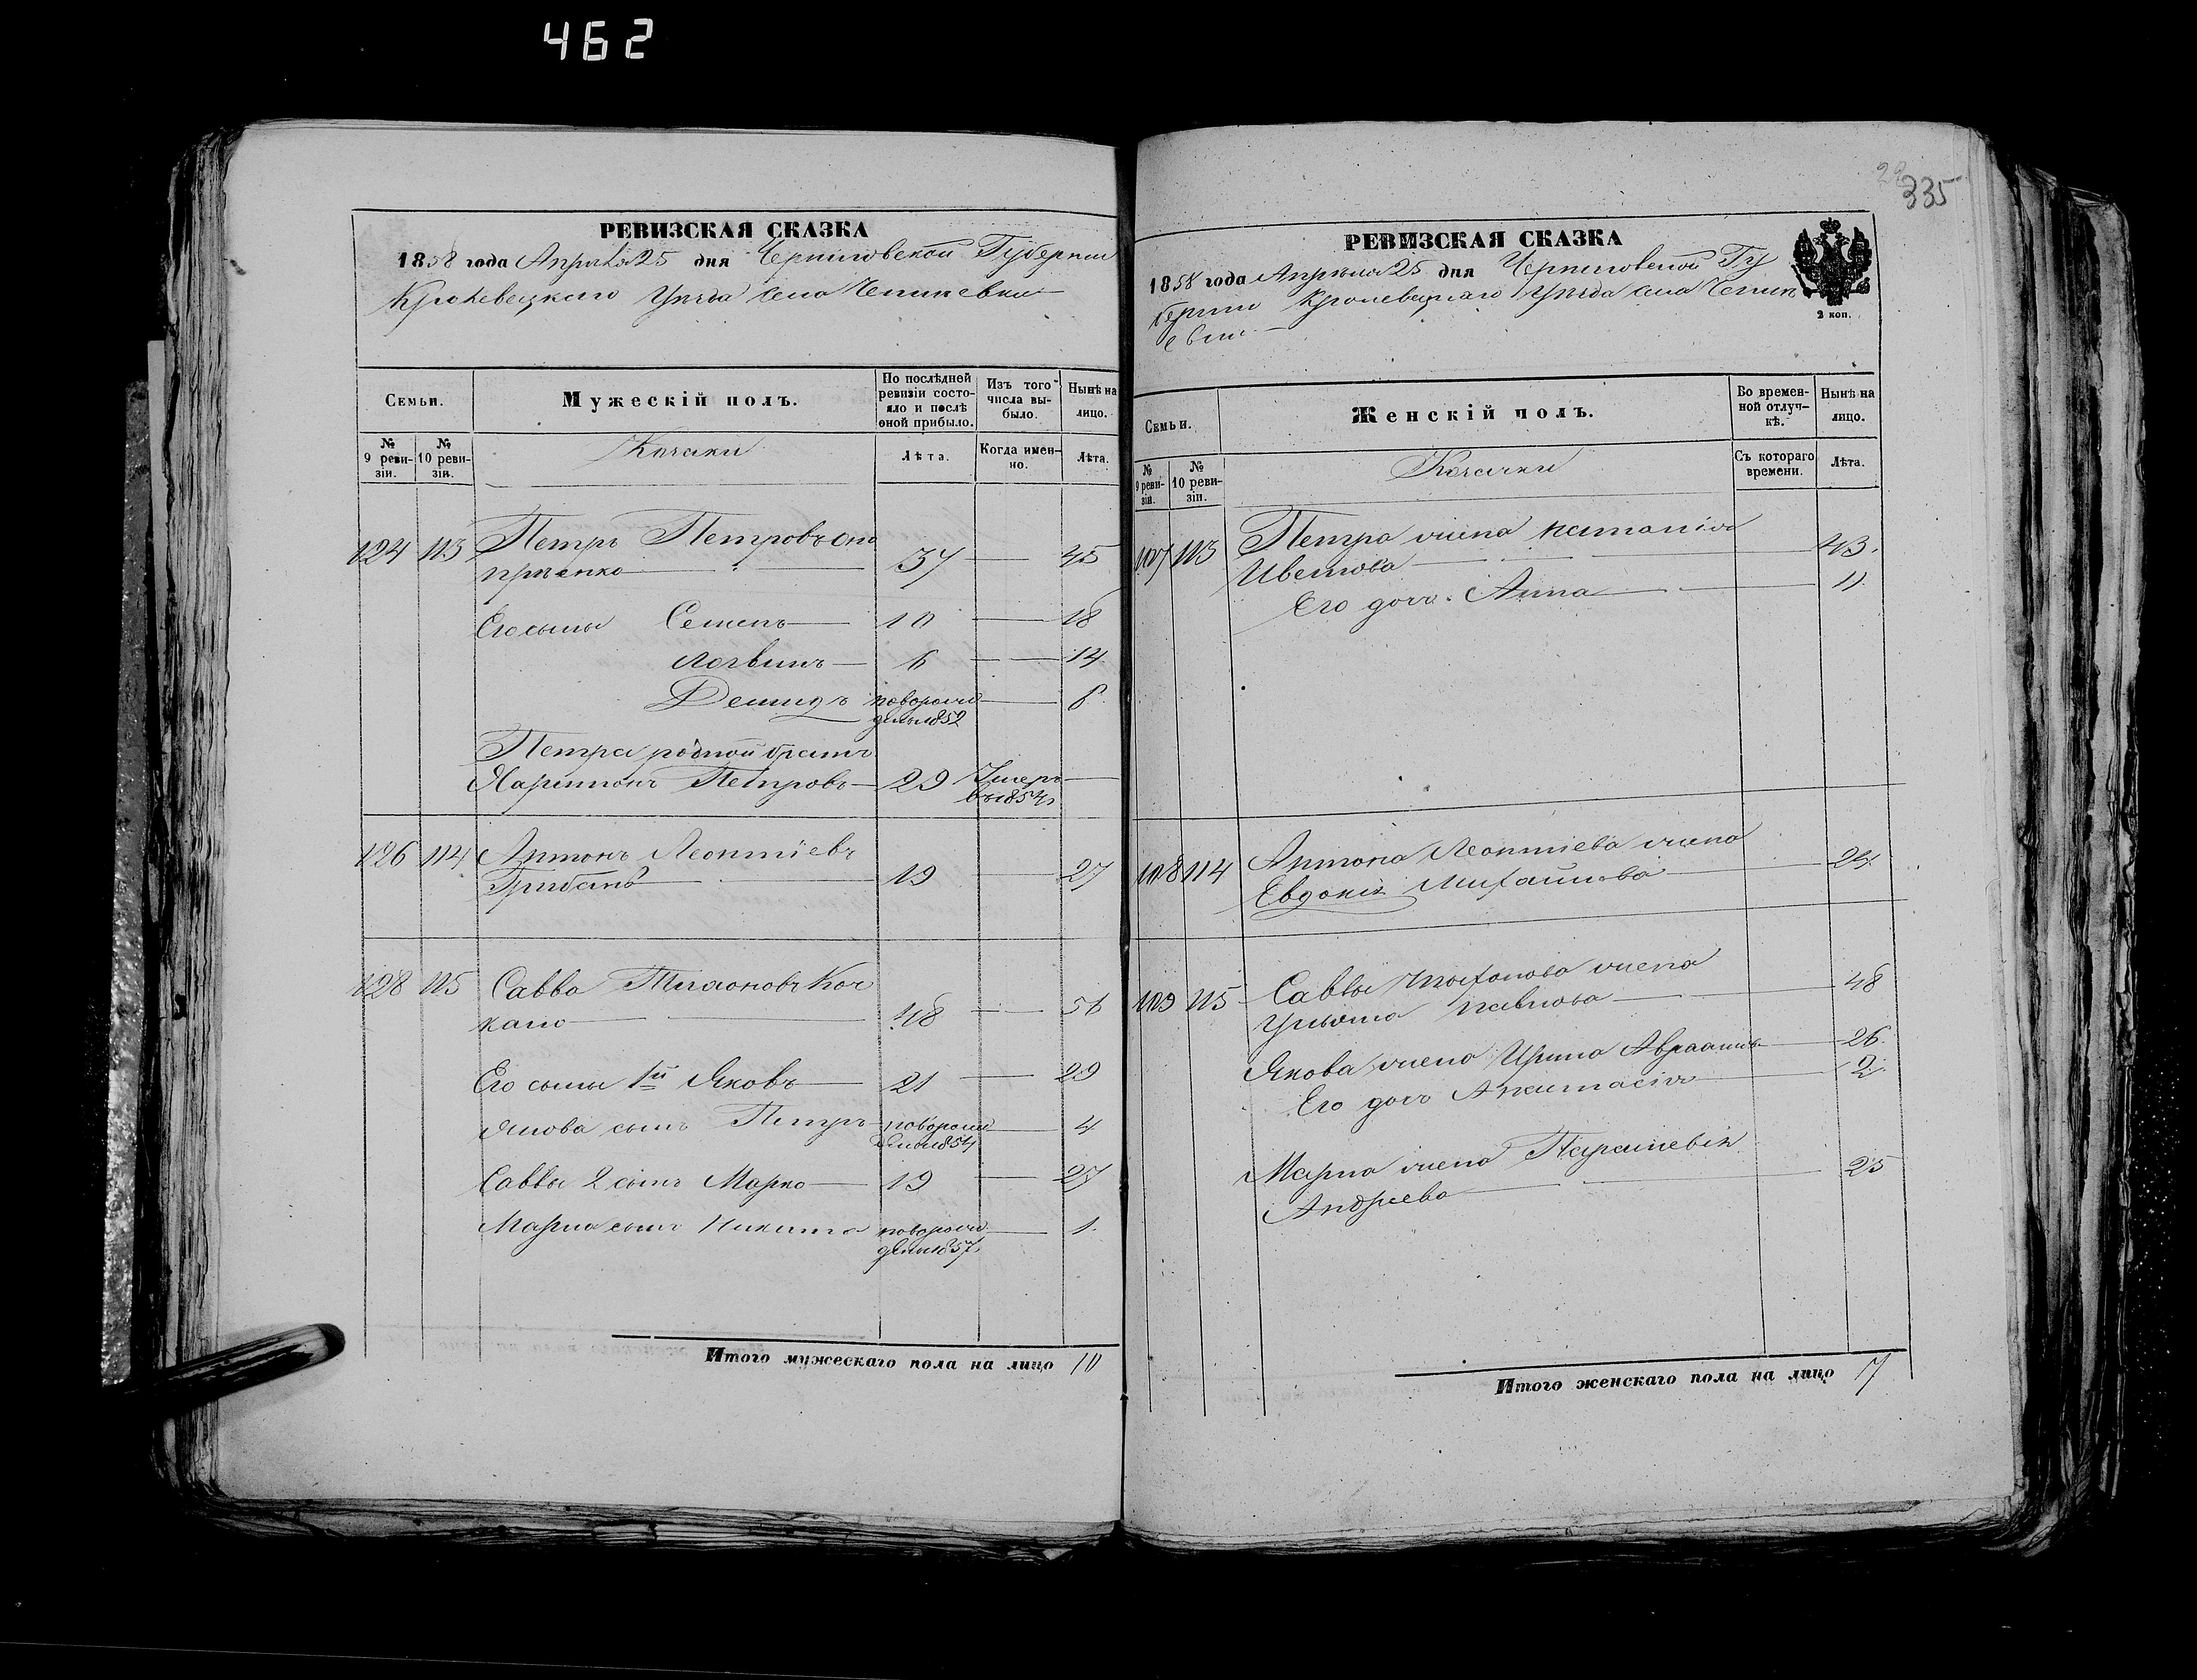 462
РЕВИЗСКАЯ СКАЗКА
1858 года Апреля 25 дня Черниговской Губернии
Кролевецкаго Уезда села
Семьи.
Мужескій полъ.
По послѣдней ревизіи состояло и послѣ оной прибыло.
Изъ того числа выбыло.
Нынѣ на лицо.
№ 9 ревизіи.
№ 10 ревизіи.
Козаки
Лѣта.
Когда именно.
Лѣта.
124 113 Петръ Петровъ
37 45
Его сыны Семенъ 10 18
Логвинъ 6 14
Демидъ новорожденъ 1852 6
Петра родной братъ
Харитонъ Петровъ 29 Умеръ въ 1854
126 114 Антонъ Леонтіевъ
Грибанъ 19 27
128 115 Савва Тихоновъ
48 56
Его сыны 1й Яковъ 21 29
Якова сынъ Петръ новорожденъ 1854 4
Саввы 2 сынъ Марко 19 27
Марка сынъ Никита новорожденъ 1857 1
Итого мужескаго пола на лицо 10
335
РЕВИЗСКАЯ СКАЗКА
1858 года Апреля 25 дня Черниговской Гу
берніи Кролевецкаго Уезда села
2 коп.
Семьи.
Женскій полъ.
Во временной отлучкѣ.
Нынѣ на лицо.
№ 9 ревизіи.
№ 10 ревизіи.
Козачки
Съ котораго времени.
Лѣта.
107 113 Петра жена
43
Его дочь Анна 11
108 114 Антона Леонтіева жена
Евдокія Михайлова 24
109 115 Саввы Тихонова жена
Ульяна Павлова 48
Якова жена Ирина 26
Его дочь Анастасія 2
Марка жена Параскевія
Андреева 25
Итого женскаго пола на лицо 7